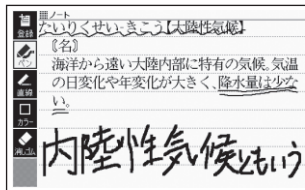 ノート
登録
ペン
直線
カラー
消しゴム
たいりくせい-きこう【大陸性気候】
〘名〙
海洋から遠い大陸内部に特有の気候。気温
の日変化や年変化が大きく、降水量は少な
い。
内陸性気候ともいう